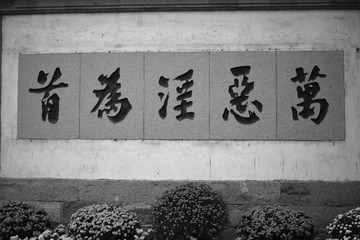 萬惡淫為首